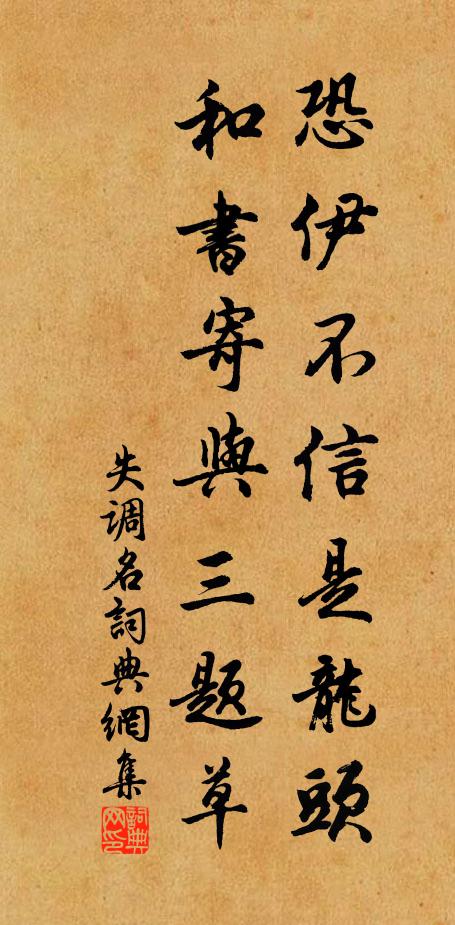 恐伊不信是龍頭
和書寄與三题草
失调名詞典網集
詞典网印